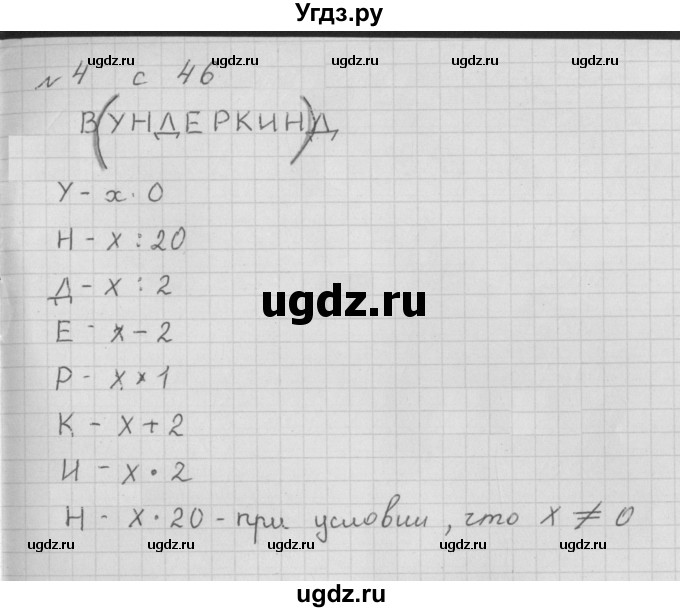 Угдз.ру
ugdz.ru ugdz.ru ugdz.ru
№ 4 с 46
В(УНДЕРКИН)Д
У - x · 0
ugdz.ru ugdz.ru
Н - x : 20
Д - x : 2
ugdz.ru
Е - x - 2
ugdz.ru ugdz.ru
Р - x × 1
К - x + 2
ugdz.ru ugdz.ru
И - x · 2
Н - x · 20 - при условии, что x ≠ 0
ugdz.ru ugdz.ru ugdz.ru
ugdz.ru ugdz.ru
ugdz.ru